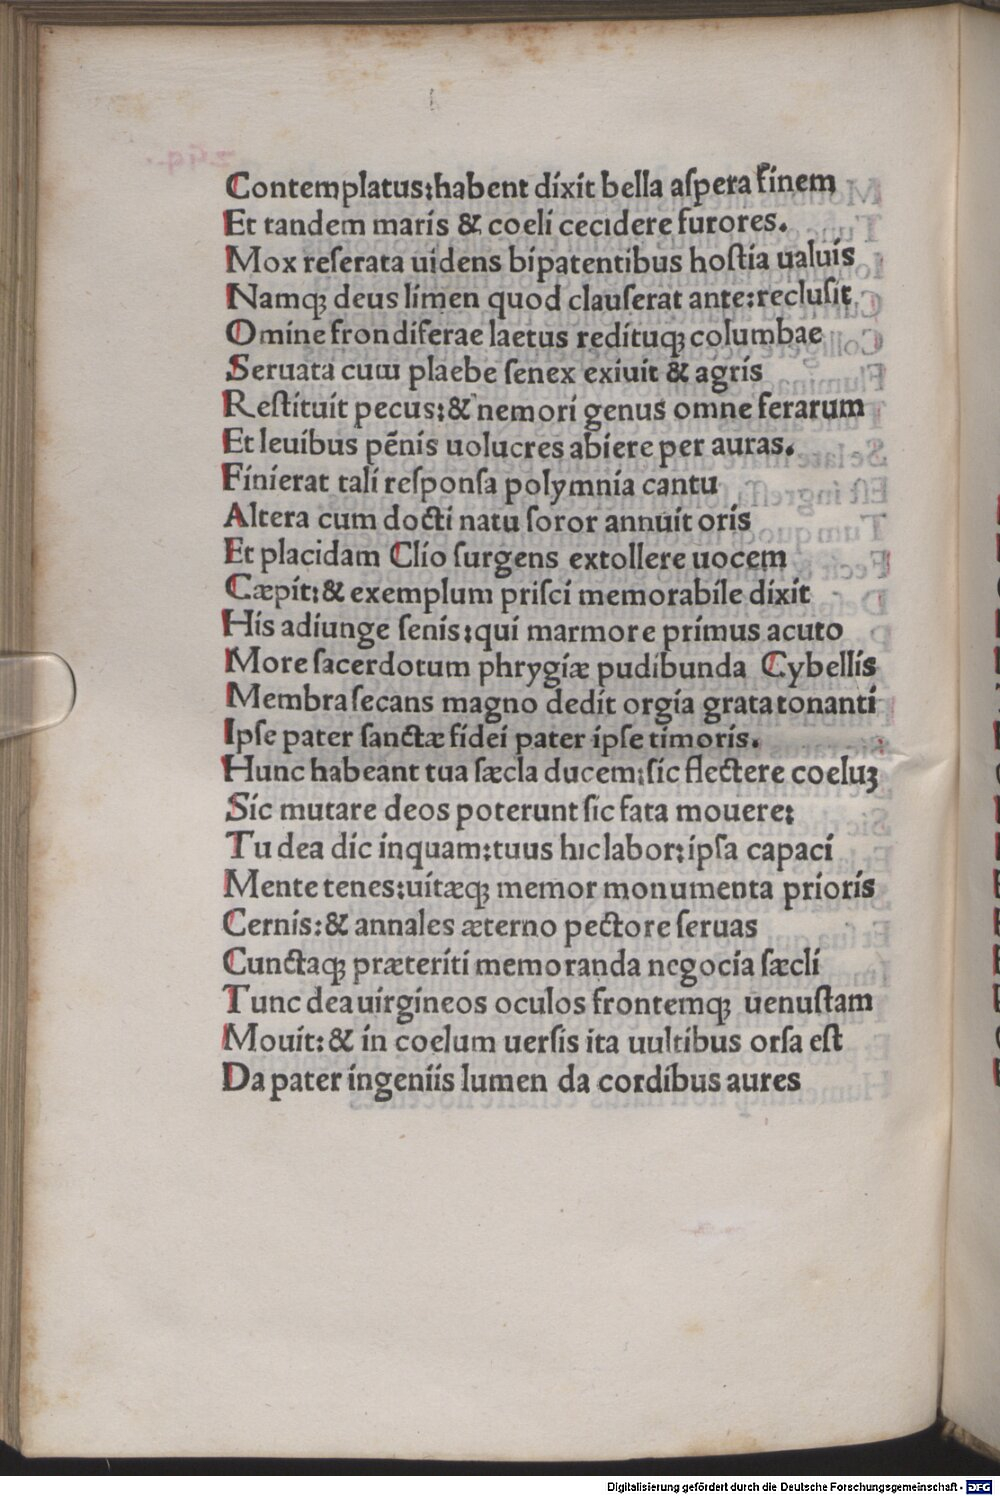 Contemplatus:habent dixit bella aſpera finem
Et tandem maris & coeli cecidere furores.
Mox reſerata uidens bipatentibus hoſtia ualuis
Namq; deus limen quod clauſerat ante:recluſit
Omine frondiferae laetus redituq; columbae
Seruata cum plaebe ſenex exiuit & agris
Reſtituit pecus:& nemori genus omne ferarum
Et leuibus pēnis uolucres abiere per auras.
Finierat tali reſponſa polymnia cantu
Altera cum docti natu ſoror annuit oris
Et placidam Clio ſurgens extollere uocem
Cæpit:& exemplum priſci memorabile dixit
His adiunge ſenis:qui marmore primus acuto
More ſacerdotum phrygiæ pudibunda Cybellis
Membra ſecans magno dedit orgia grata tonanti
Ipſe pater ſanctæ fidei pater ipſe timoris.
Hunc habeant tua ſæcla ducem:ſic flectere coeluꝫ
Sic mutare deos poterunt ſic fata mouere:
Tu dea dic inquam:tuus hic labor:ipſa capaci
Mente tenes:uitæq; memor monumenta prioris
Cernis:& annales æterno pectore ſeruas
Cunctaq; præteriti memoranda negocia ſæcli
Tunc dea uirgineos oculos frontemq; uenuſtam
Mouit:& in coelum uerſis ita uultibus orſa eſt
Da pater ingeniis lumen da cordibus aures
Digitalisierung gefördert durch die Deutsche Forschungsgemeinschaft - DFG